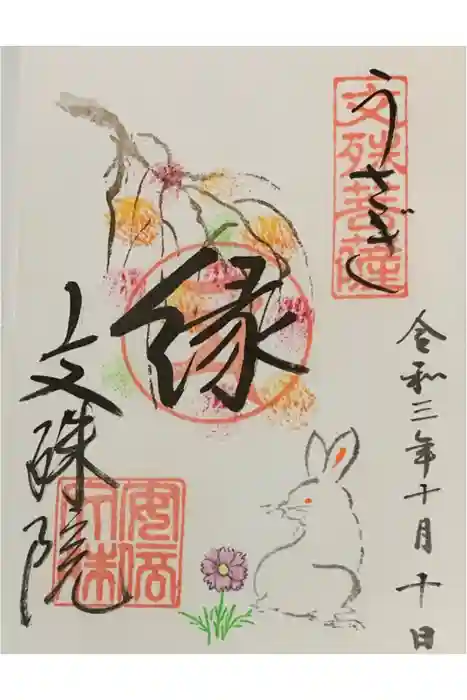 うさぎ
文殊菩薩
令和三年十月十日
縁
文殊院